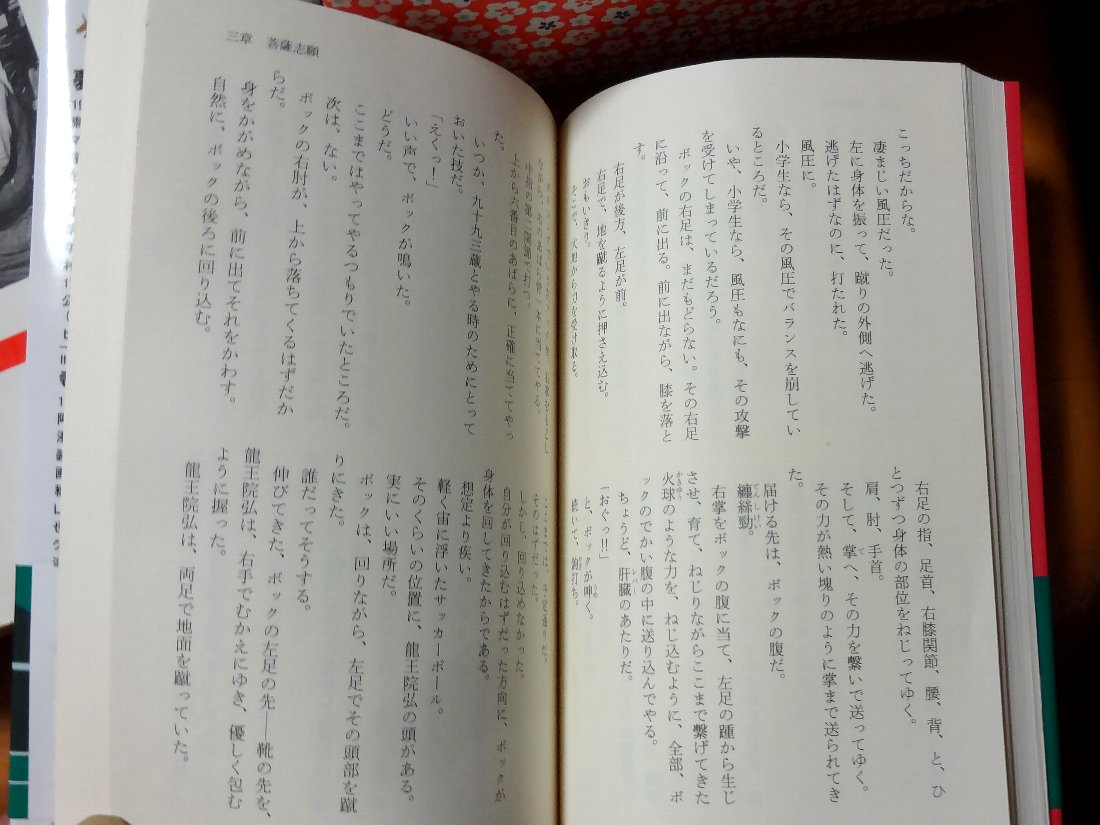 こっちだからな。
凄まじい風圧だった。
左に身体を振って、蹴りの外側へ逃げた。
逃げたはずなのに、打たれた。
風圧に。
小学生なら、その風圧でバランスを崩してい
るところだ。
いや、小学生なら、風圧もなにも、その攻撃
を受けてしまっているだろう。
ボックの右足は、まだもどらない。その右足
に沿って、前に出る。前に出ながら、膝を落と
す。
右足が後方、左足が前。
右足で、地を蹴るように押さえ込む。
おもいきり。
そこで、大地から力を受け取る。
右足の指、足首、右膝関節、腰、背、と、ひ
とつずつ身体の部位をねじってゆく。
肩、肘、手首。
そして、掌へ、その力を繋いで送ってゆく。
その力が熱い塊りのように掌まで送られてき
た。
届ける先は、ボックの腹だ。
纏絲勁。
右掌をボックの腹に当て、左足の踵から生じ
させ、育て、ねじりながらここまで繋げてきた
火球のような力を、ねじ込むように、全部、ボ
ックのでかい腹の中に送り込んでやる。
ちょうど、肝臓のあたりだ。
「おぐっ!!」
と、ボックが呻く。
続いて、鉤打ち。
三章 菩薩志願
中指の第二関節で打つ。
上から六番目のあばらに、正確に当ててやっ
た。
いつか、九十九三蔵とやる時のためにとって
おいた技だ。
「えくっ!」
いい声で、ボックが鳴いた。
どうだ。
ここまではやってやるつもりでいたところだ。
次は、ない。
ボックの右肘が、上から落ちてくるはずだか
らだ。
身をかがめながら、前に出てそれをかわす。
自然に、ボックの後ろに回り込む。
ここまでは、予定通りだ。
そのはずだった。
しかし、回り込めなかった。
自分が回り込むはずだった方向に、ボックが
身体を回してきたからである。
想定より疾い。
軽く宙に浮いたサッカーボール。
そのくらいの位置に、龍王院弘の頭がある。
実にいい場所だ。
ボックは、回りながら、左足でその頭部を蹴
りにきた。
誰だってそうする。
伸びてきた、ボックの左足の先――靴の先を、
龍王院弘は、右手でむかえにゆき、優しく包む
ように握った。
龍王院弘は、両足で地面を蹴っていた。